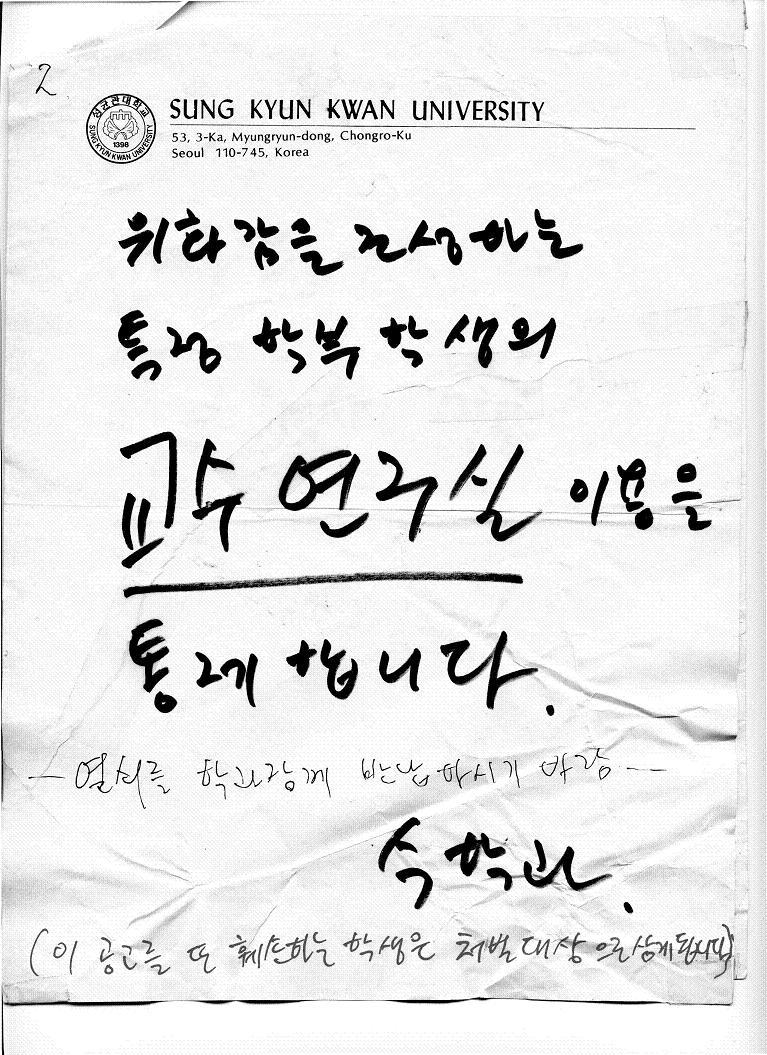 2
성균관대학교
1398
SUNG KYUN KWAN UNIVERSITY
SUNG KYUN KWAN UNIVERSITY
53, 3-Ka, Myungryun-dong, Chongro-Ku
Seoul 110-745, Korea
위화감을 조성하는
특정 학부 학생의
교수 연구실 이용을
통제 합니다.
- 열쇠를 학과장께 반납하시기 바람 --
수학과.
(이 공고를 또 훼손하는 학생은 처벌대상으로 삼게 됩니다)